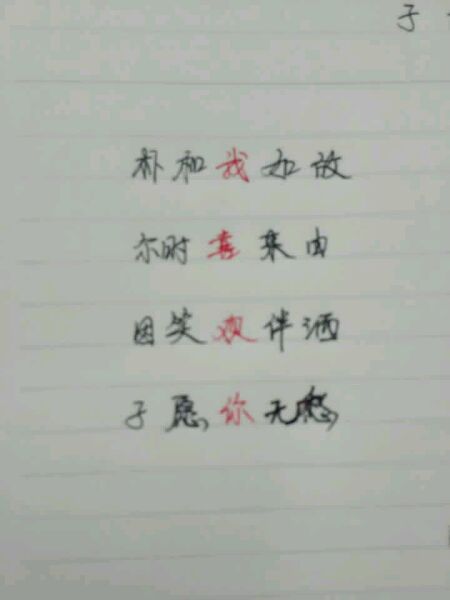 子
朴和我如故
尔时喜来由
因笑欢伴酒
子愿你无愁